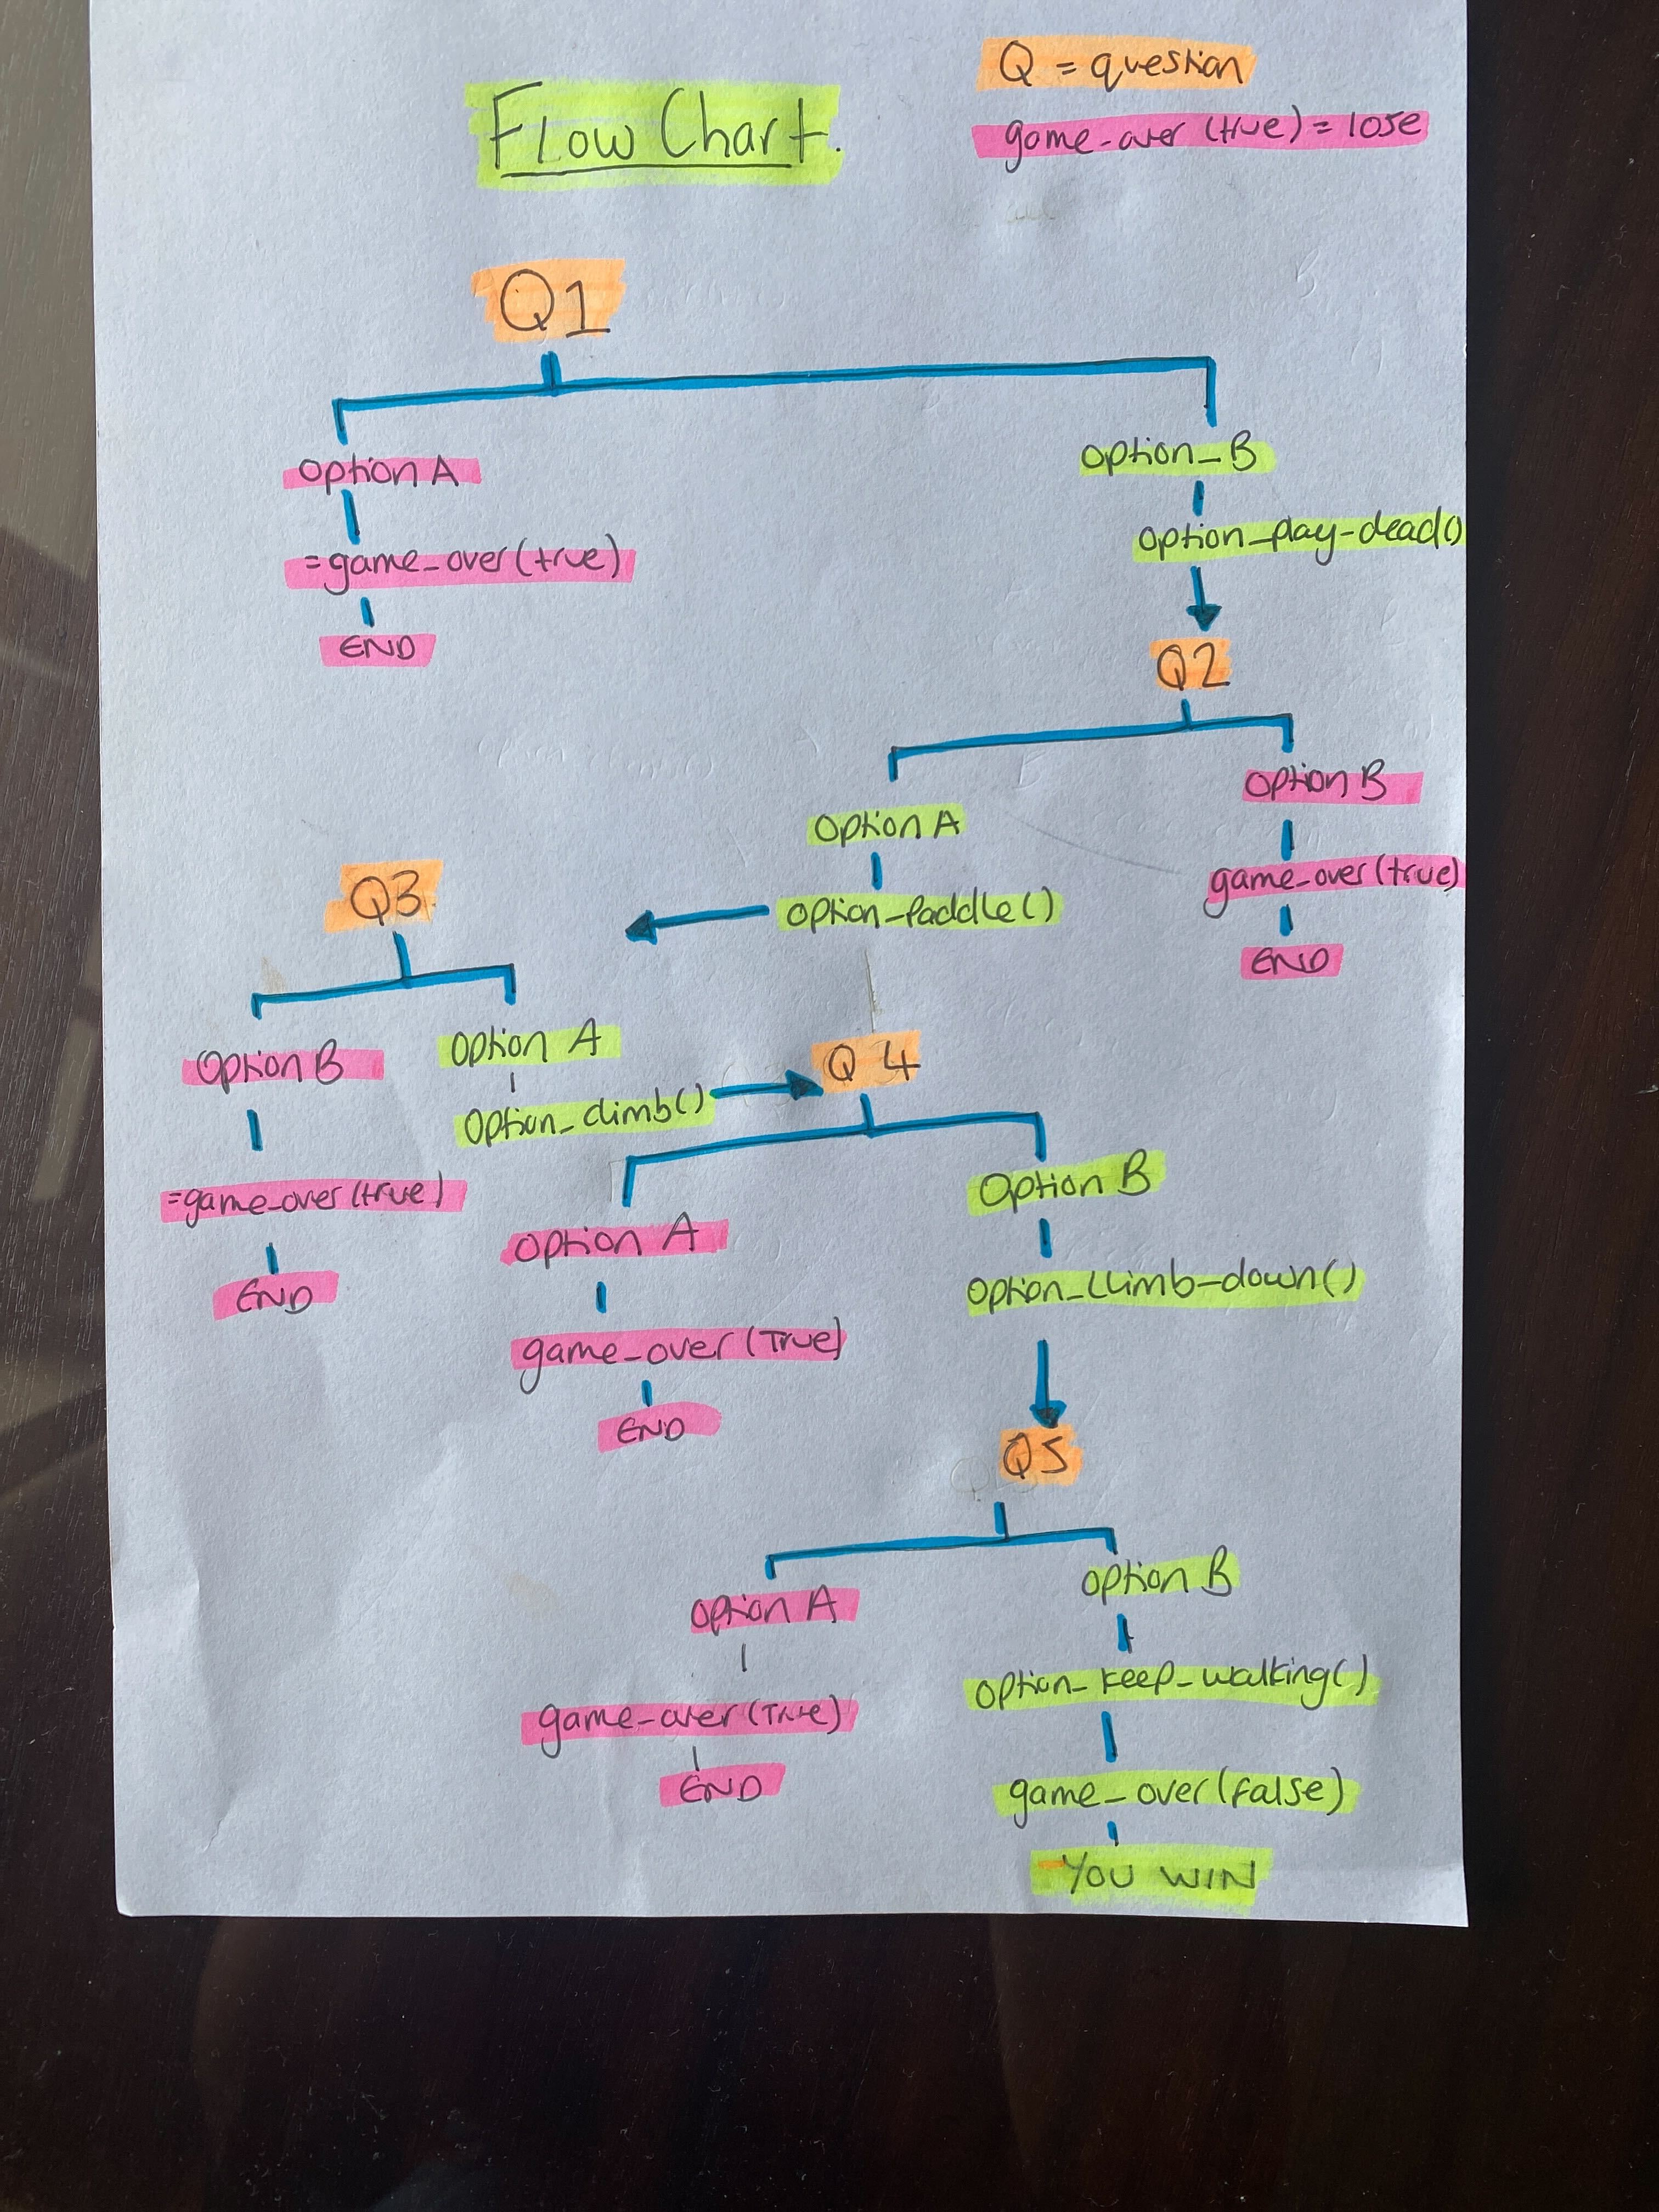 Flow Chart.
Q = question
game_over (true) = lose
Q1
option A
= game_over (true)
END
option_B
option_play-dead()
Q2
option B
game_over (true)
END
option A
option_Paddle()
Q3
Option B
= game_over (true)
END
option A
option_climb()
Q4
option A
game_over (True)
END
Option B
option_climb-down()
Q5
option A
game_over (True)
END
option B
option_keep_walking()
game_over (false)
YOU WIN